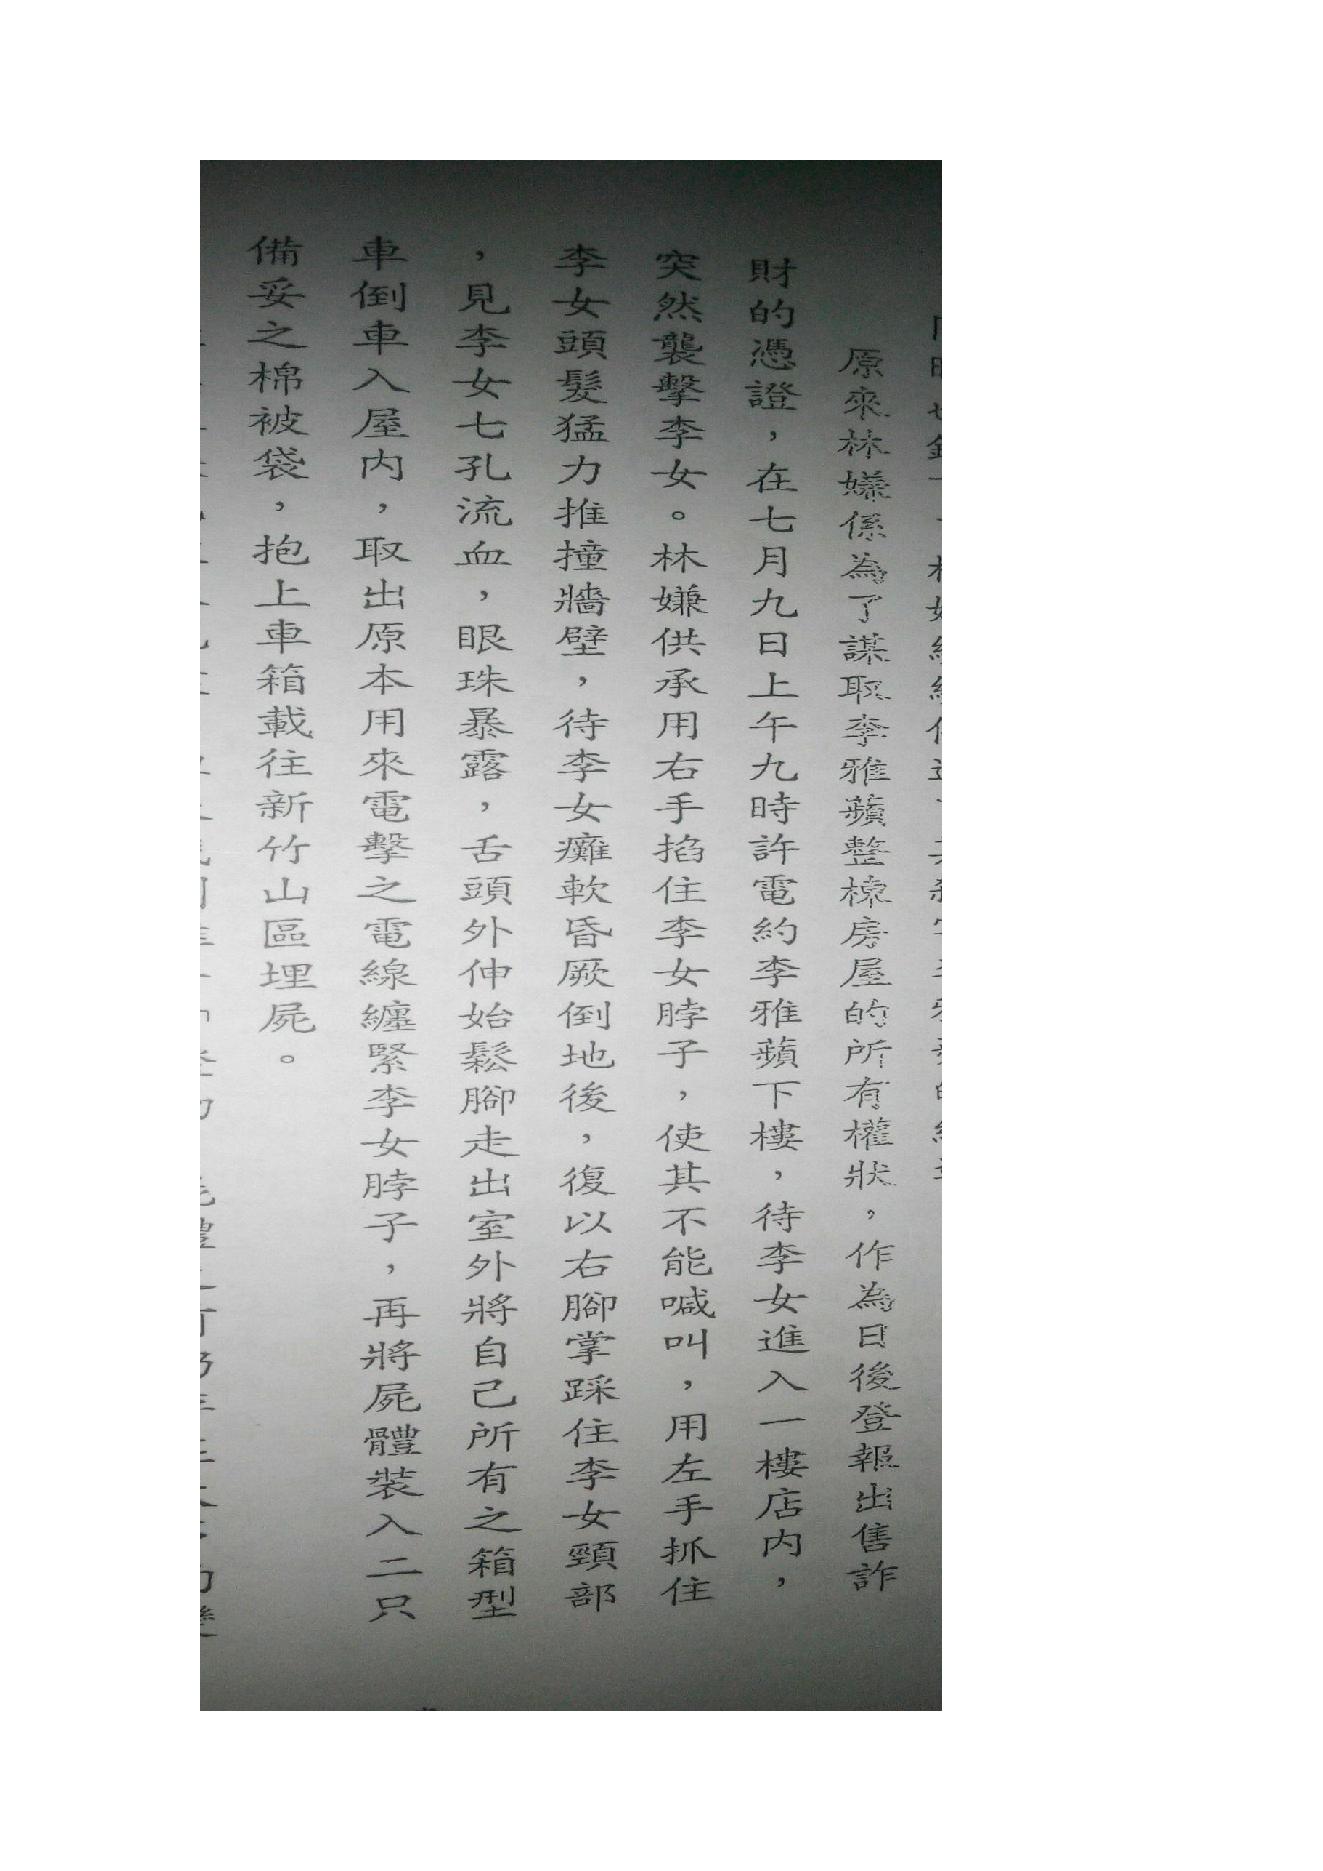 原來林嫌係為了謀取李雅蘋整棟房屋的所有權狀，作為日後登報出售詐
財的憑證，在七月九日上午九時許電約李雅蘋下樓，待李女進入一樓店內，
突然襲擊李女。林嫌供承用右手掐住李女脖子，使其不能喊叫，用左手抓住
李女頭髮猛力推撞牆壁，待李女癱軟昏厥倒地後，復以右腳掌踩住李女頸部
，見李女七孔流血，眼珠暴露，舌頭外伸始鬆腳走出室外將自己所有之箱型
車倒車入屋內，取出原本用來電擊之電線纏緊李女脖子，再將屍體裝入二只
備妥之棉被袋，抱上車箱載往新竹山區埋屍。